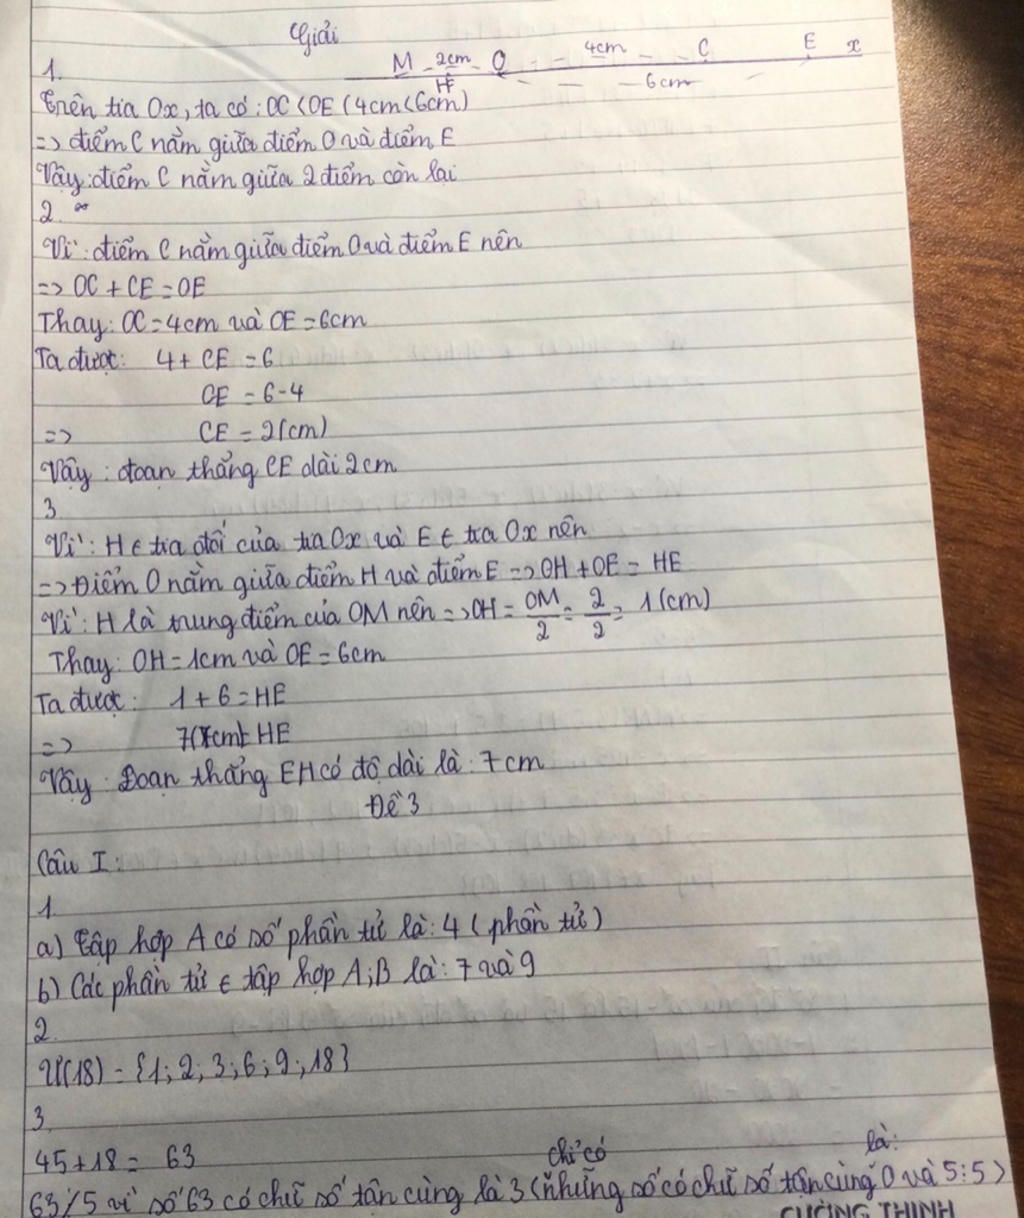 Giải
M 2cm O 4cm C E x
H 6cm
1.
Trên tia Ox, ta có: OC < OE (4cm < 6cm)
=> điểm C nằm giữa điểm O và điểm E
Vậy: điểm C nằm giữa 2 điểm còn lại
2.
Vì: điểm C nằm giữa điểm O và điểm E nên
=> OC + CE = OE
Thay: OC = 4cm và OE = 6cm
Ta được: 4 + CE = 6
CE = 6 - 4
=> CE = 2 (cm)
Vậy: đoan thẳng CE dài 2cm
3
Vì: H ∈ tia đối của tia Ox và E ∈ tia Ox nên
=> Điểm O nằm giữa điểm H và điểm E => OH + OE = HE
Vì: H là trung điểm của OM nên => OH = OM/2 = 2/2 = 1 (cm)
Thay: OH = 1cm và OE = 6cm
Ta được: 1 + 6 = HE
=> 7 (cm) = HE
Vậy: Đoạn thẳng EH có độ dài là: 7cm
Đề 3
Câu I:
1.
a) Tập hợp A có số phần tử là: 4 (phần tử)
b) Các phần tử ∈ tập hợp A; B là: 7 và 9
2.
Ư(18) = {1; 2; 3; 6; 9; 18}
3.
45 + 18 = 63
63 ⋮̸ 5 vì số 63 có chữ số tận cùng là 3 (những số chỉ có chữ số tận cùng là: 0 và 5 : 5)
CƯỜNG THỊNH